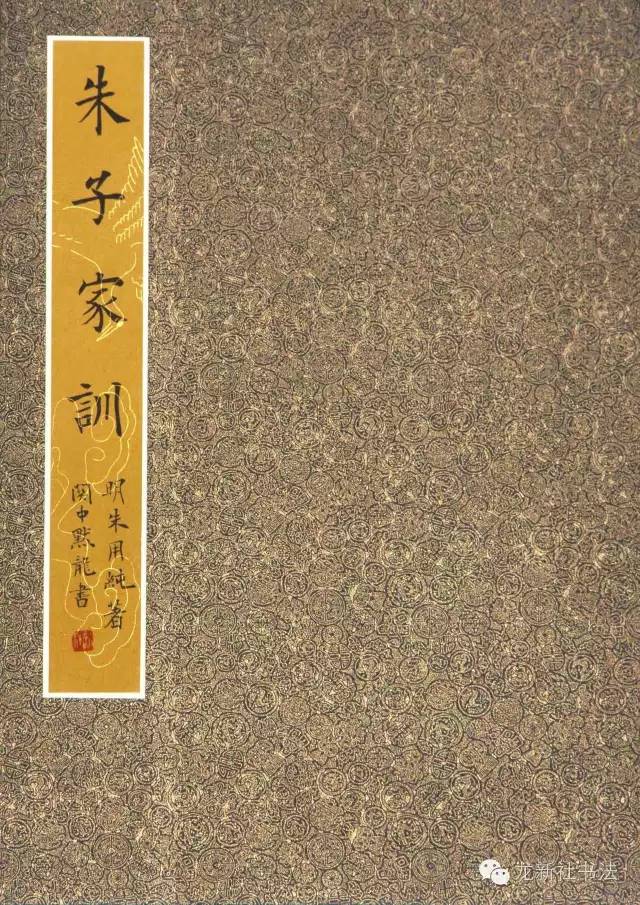 朱子家訓
明朱用純著
関中默龍書
龙新社书法